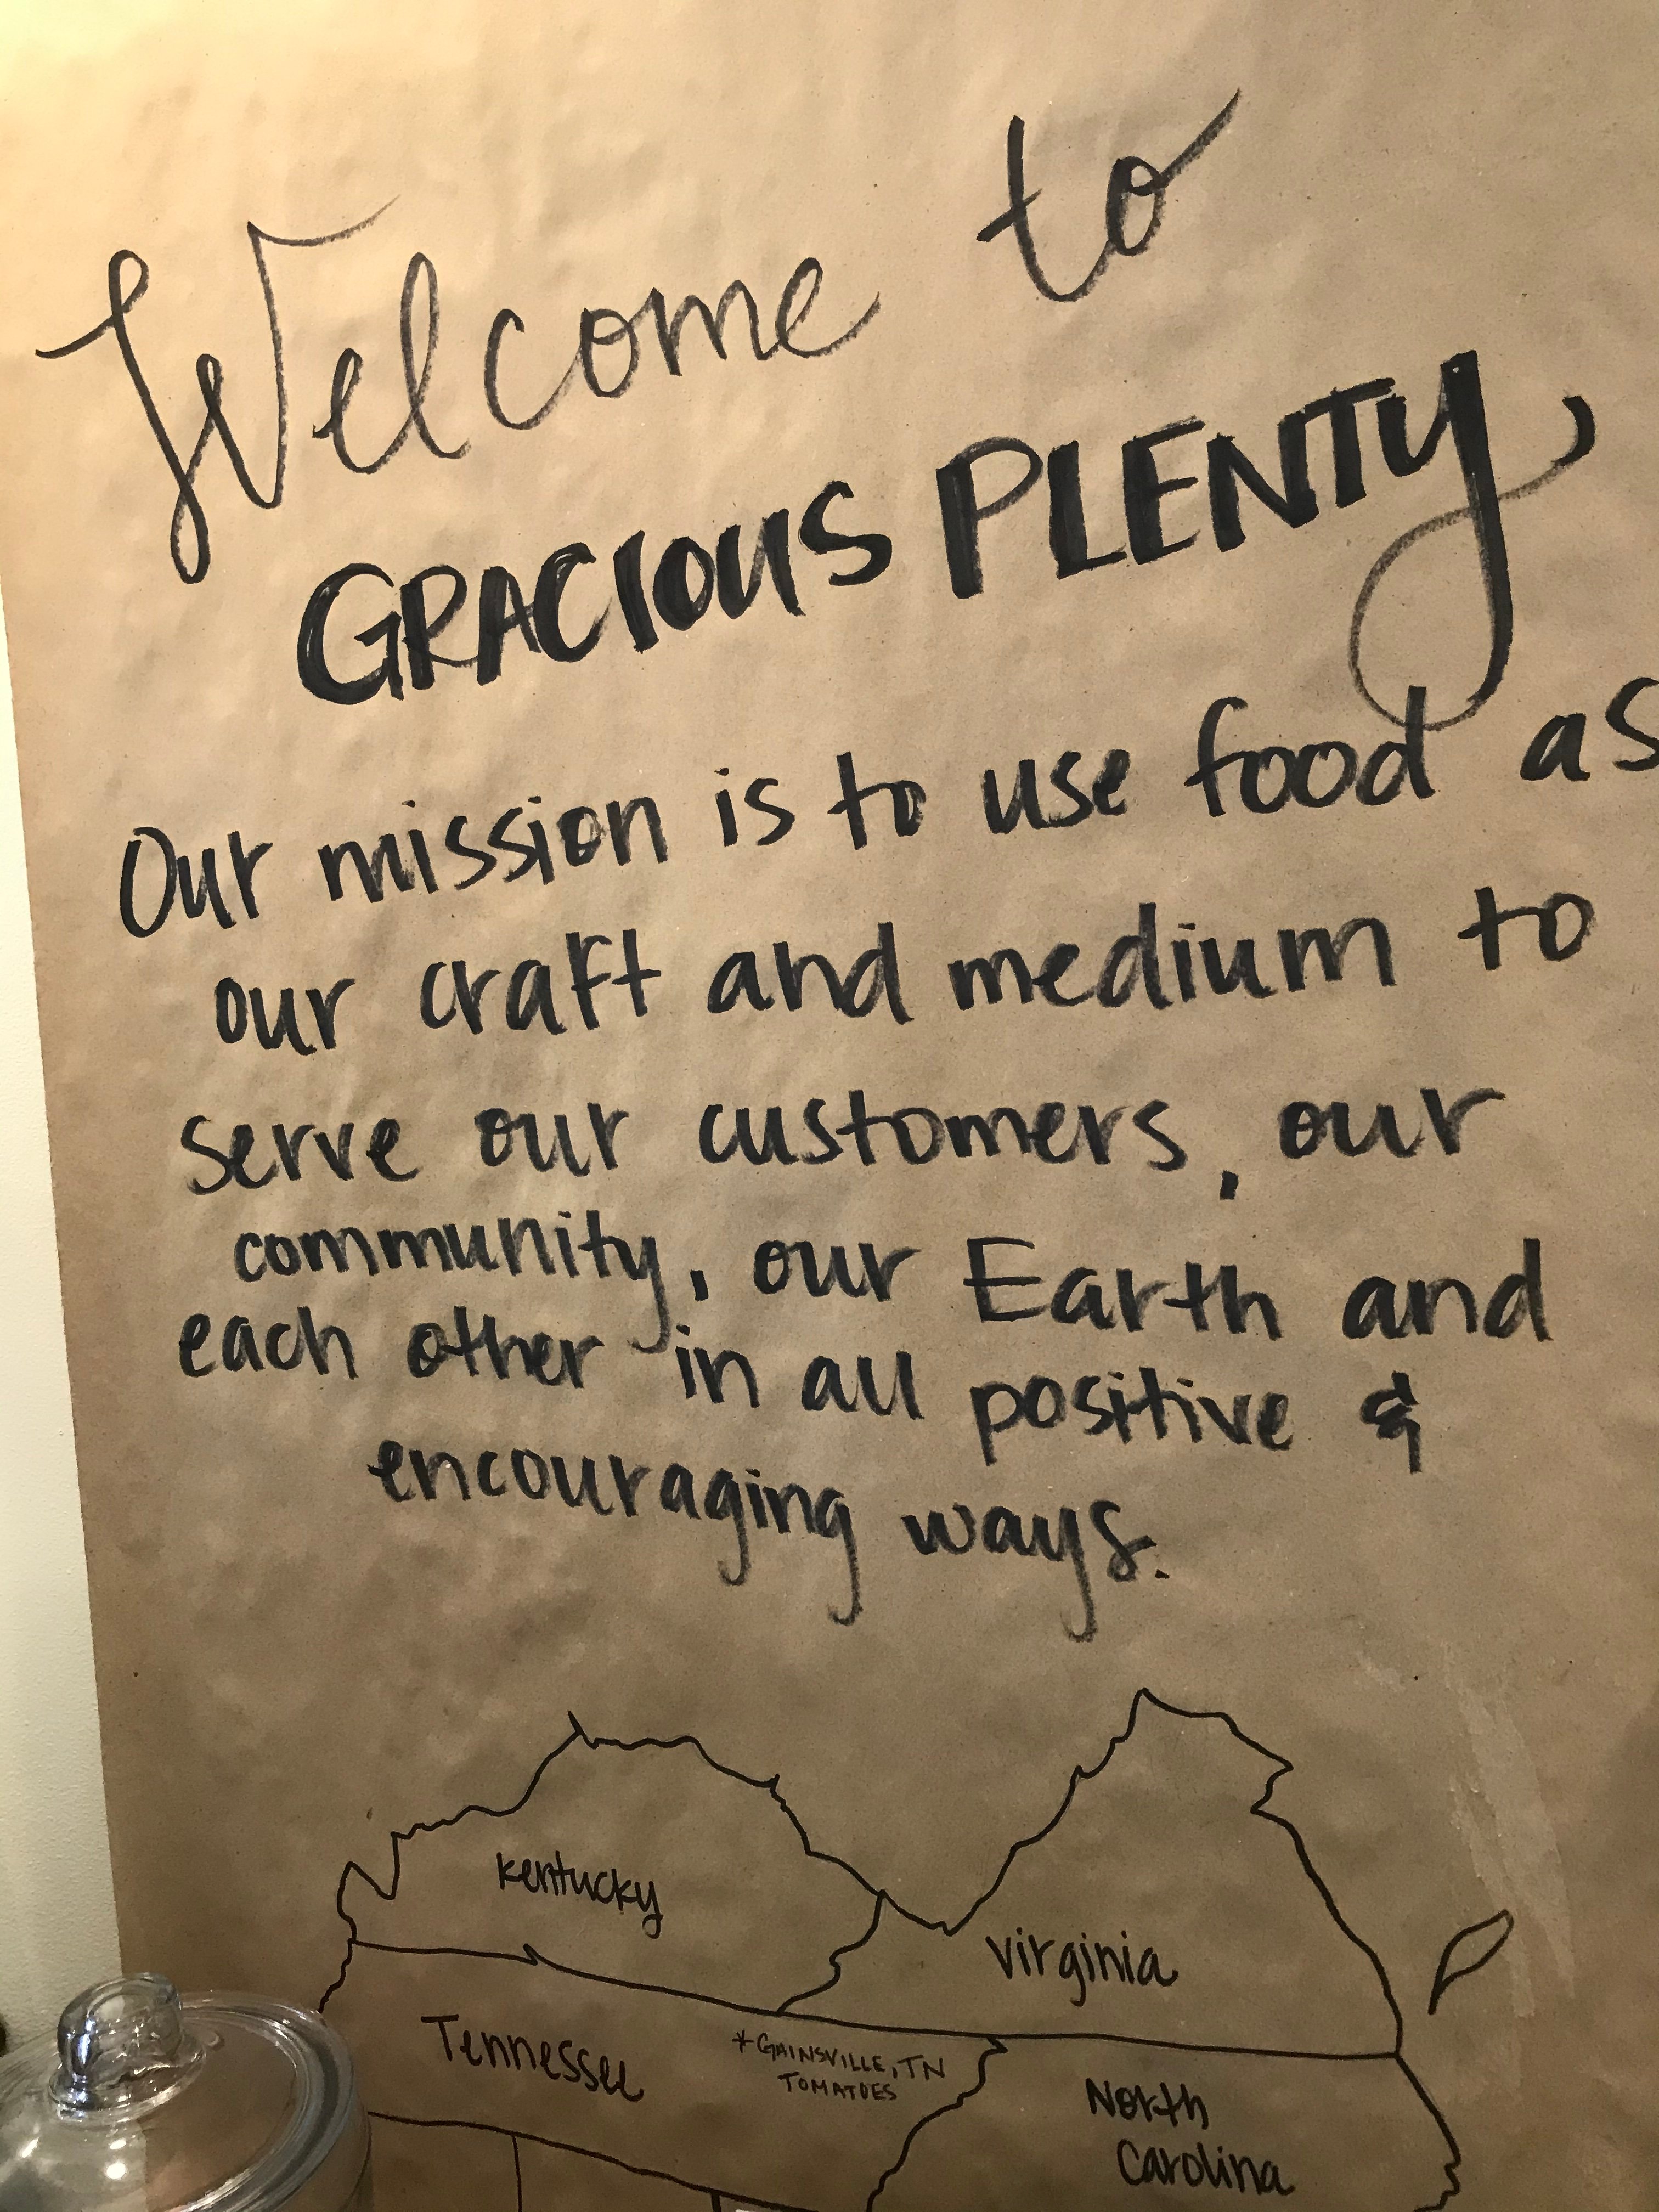 Welcome to
GRACIOUS PLENTY
Our mission is to use food as
our craft and medium to
serve our customers, our
community, our Earth and
each other in all positive &
encouraging ways.
Kentucky
Virginia
Tennessee
*GAINSVILLE, TN
TOMATOES
North
Carolina